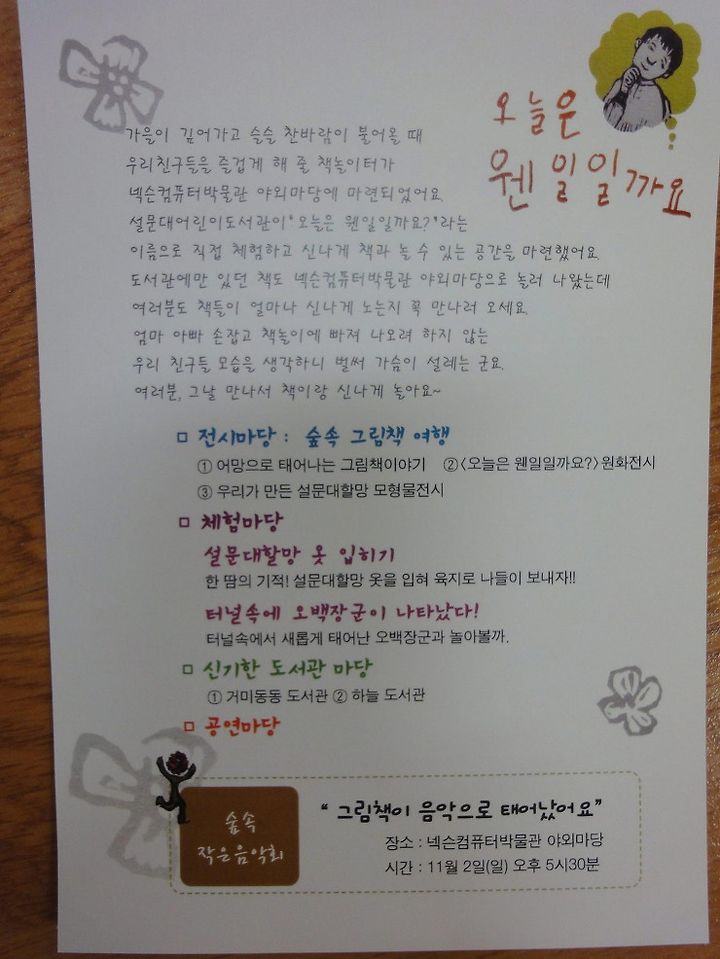 오늘은
웬일일까요
가을이 깊어가고 슬슬 찬바람이 불어올 때
우리친구들을 즐겁게 해 줄 책놀이터가
넥슨컴퓨터박물관 야외마당에 마련되었어요.
설문대어린이도서관이 "오늘은 웬일일까요?"라는
이름으로 직접 체험하고 신나게 책과 놀 수 있는 공간을 마련했어요.
도서관에만 있던 책도 넥슨컴퓨터박물관 야외마당으로 놀러 나왔는데
여러분도 책들이 얼마나 신나게 노는지 꼭 만나러 오세요.
엄마 아빠 손잡고 책놀이에 빠져 나오려 하지 않는
우리 친구들 모습을 생각하니 벌써 가슴이 설레는 군요.
여러분, 그날 만나서 책이랑 신나게 놀아요~
□ 전시마당 : 숲속 그림책 여행
① 어망으로 태어나는 그림책이야기 ②〈오늘은 웬일일까요?〉원화전시
③ 우리가 만든 설문대할망 모형물전시
□ 체험마당
설문대할망 옷 입히기
한 땀의 기적! 설문대할망 옷을 입혀 육지로 나들이 보내자!!
터널속에 오백장군이 나타났다!
터널속에서 새롭게 태어난 오백장군과 놀아볼까.
□ 신기한 도서관 마당
① 거미동동 도서관 ② 하늘 도서관
□ 공연마당
숲속
작은음악회
" 그림책이 음악으로 태어났어요"
장소 : 넥슨컴퓨터박물관 야외마당
시간 : 11월 2일(일) 오후 5시30분